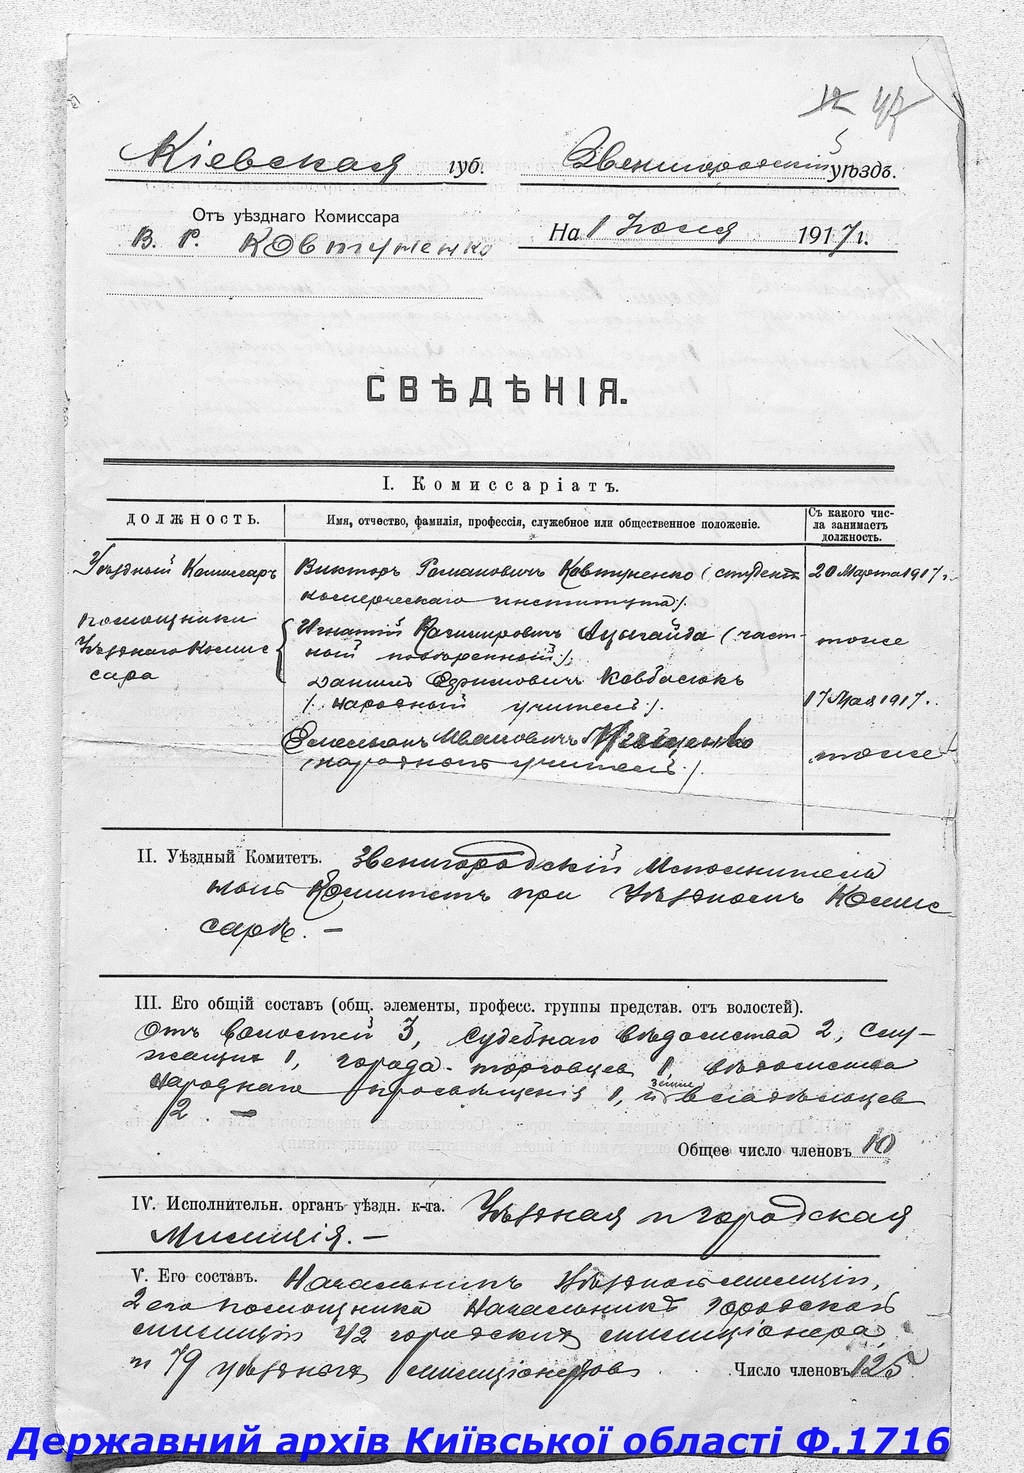 12 47
Кіевская губ. Звенигородскій уѣздъ.
Отъ уѣзднаго Комиссара
В. Р. Ковтуненко
На 1 Іюня 1917 г.
СВѢДѢНІЯ.
I. Комиссаріатъ.
ДОЛЖНОСТЬ.
Имя, отчество, фамилія, профессія, служебное или общественное положеніе.
Съ какого чис-
ла занимаетъ
должность.
Уѣздный Комиссаръ
Викторъ Романовичъ Ковтуненко (студентъ
20 Марта 1917 г.
комерческаго института).
помощники
Уѣзднаго Комис
сара
Игнатій Казимировичъ (част-
ный повѣренный),
тоже
Даніилъ Ефимовичъ Ковбасюкъ
(народный учитель).
17 Мая 1917.
Емельянъ Ивановичъ
(народный учитель).
тоже
II. Уѣздный Комитетъ. Звенигородскій Исполнитель
ный Комитетъ при Уѣздномъ Комис
сарѣ. —
III. Его общій составъ (общ. элементы, професс. группы представ. отъ волостей).
Отъ волостей 3, судебнаго вѣдомства 2, слу-
жащих 1, города - торговцев 1, вѣдомства
народнаго просвѣщенія 1, и земле владѣльцев
2. —
Общее число членовъ 10
IV. Исполнительн. органъ уѣздн. к-та. Уѣздная и городская
Милиція. —
V. Его составъ. Начальникъ Уѣздной милиціи,
2 его помощника Начальникъ Городской
милиціи 42 городских милиціонера
и 79 уѣздных милиціонеров
Число членовъ 125
Державний архів Київської області Ф.1716